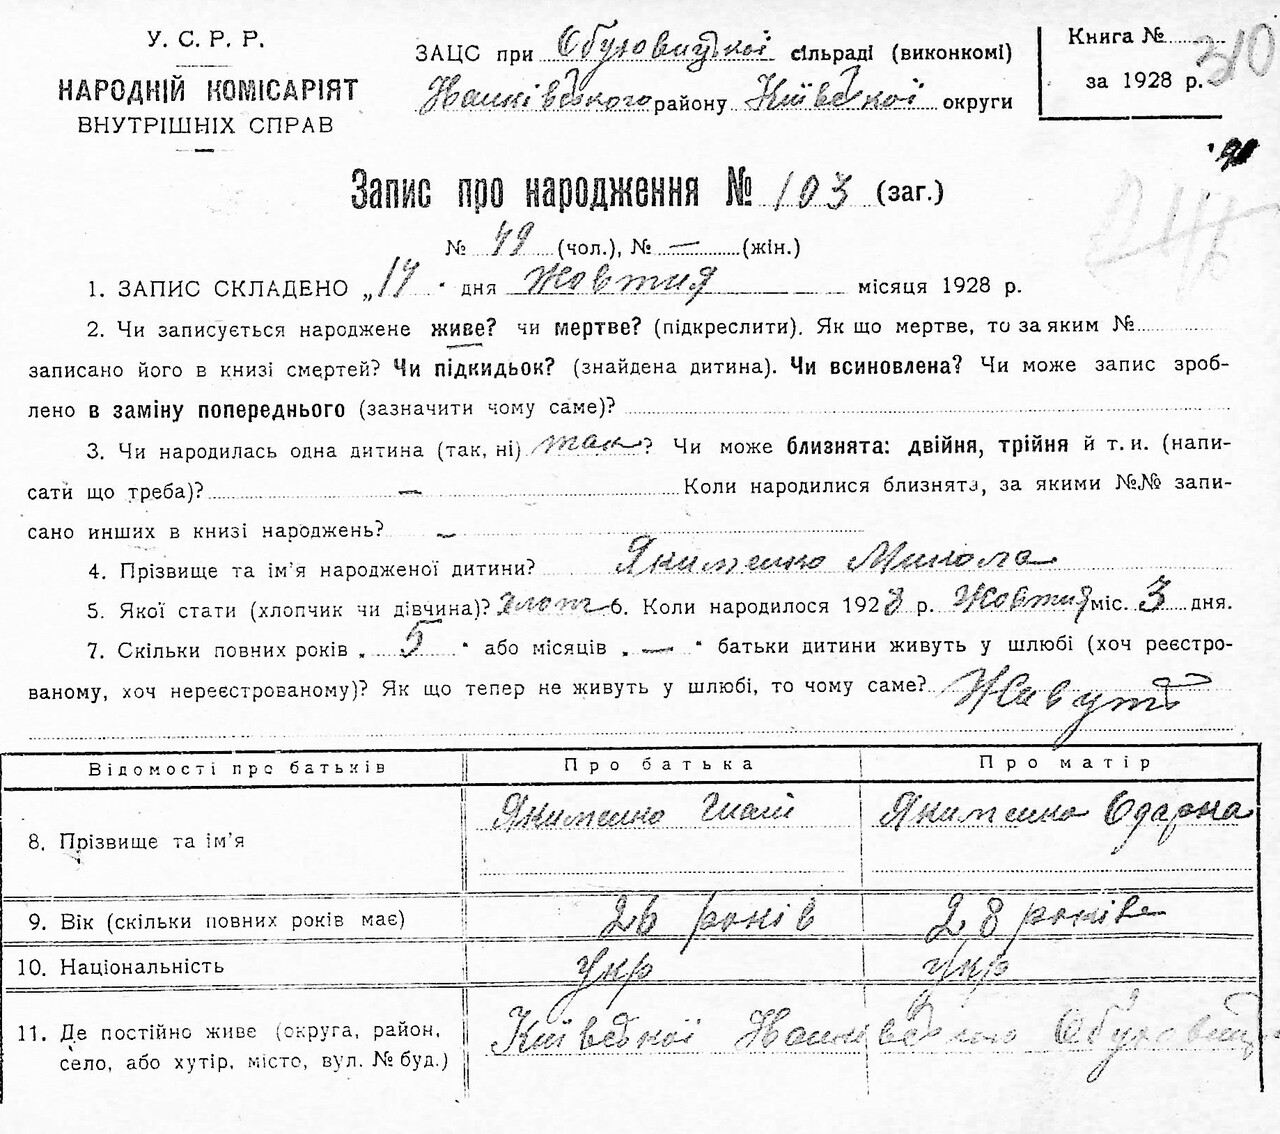 У. С. Р. Р.
НАРОДНІЙ КОМІСАРІЯТ
ВНУТРІШНІХ СПРАВ
ЗАЦС при Обуховицької сільраді (виконкомі)
району Київської округи
Книга № 310
за 1928 р.
Запис про народження № 103 (заг.)
№ 49 (чол.), № — (жін.)
1. ЗАПИС СКЛАДЕНО „14" дня жовтня місяця 1928 р.
2. Чи записується народжене живе? чи мертве? (підкреслити). Як що мертве, то за яким №
записано його в книзі смертей? Чи підкидьок? (знайдена дитина). Чи всиновлена? Чи може запис зроб-
лено в заміну попереднього (зазначити чому саме)?
3. Чи народилась одна дитина (так, ні) так? Чи може близнята: двійня, трійня й т. и. (напи-
сати що треба)? — Коли народилися близнята, за якими №№ запи-
сано инших в книзі народжень? —
4. Прізвище та ім'я народженої дитини? Якименко Микола
5. Якої стати (хлопчик чи дівчина)? хлоп 6. Коли народилося 1928 р. Жовтня міс. 3 дня.
7. Скільки повних років „ 5 " або місяців „ — " батьки дитини живуть у шлюбі (хоч реєстро-
ваному, хоч нереєстрованому)? Як що тепер не живуть у шлюбі, то чому саме? Живуть
Відомості про батьків Про батька Про матір
8. Прізвище та ім'я Якименко Якименко Одарка
9. Вік (скільки повних років має) 26 років 28 років
10. Національність Укр Укр
11. Де постійно живе (округа, район,
село, або хутір, місто, вул. № буд.) Київської